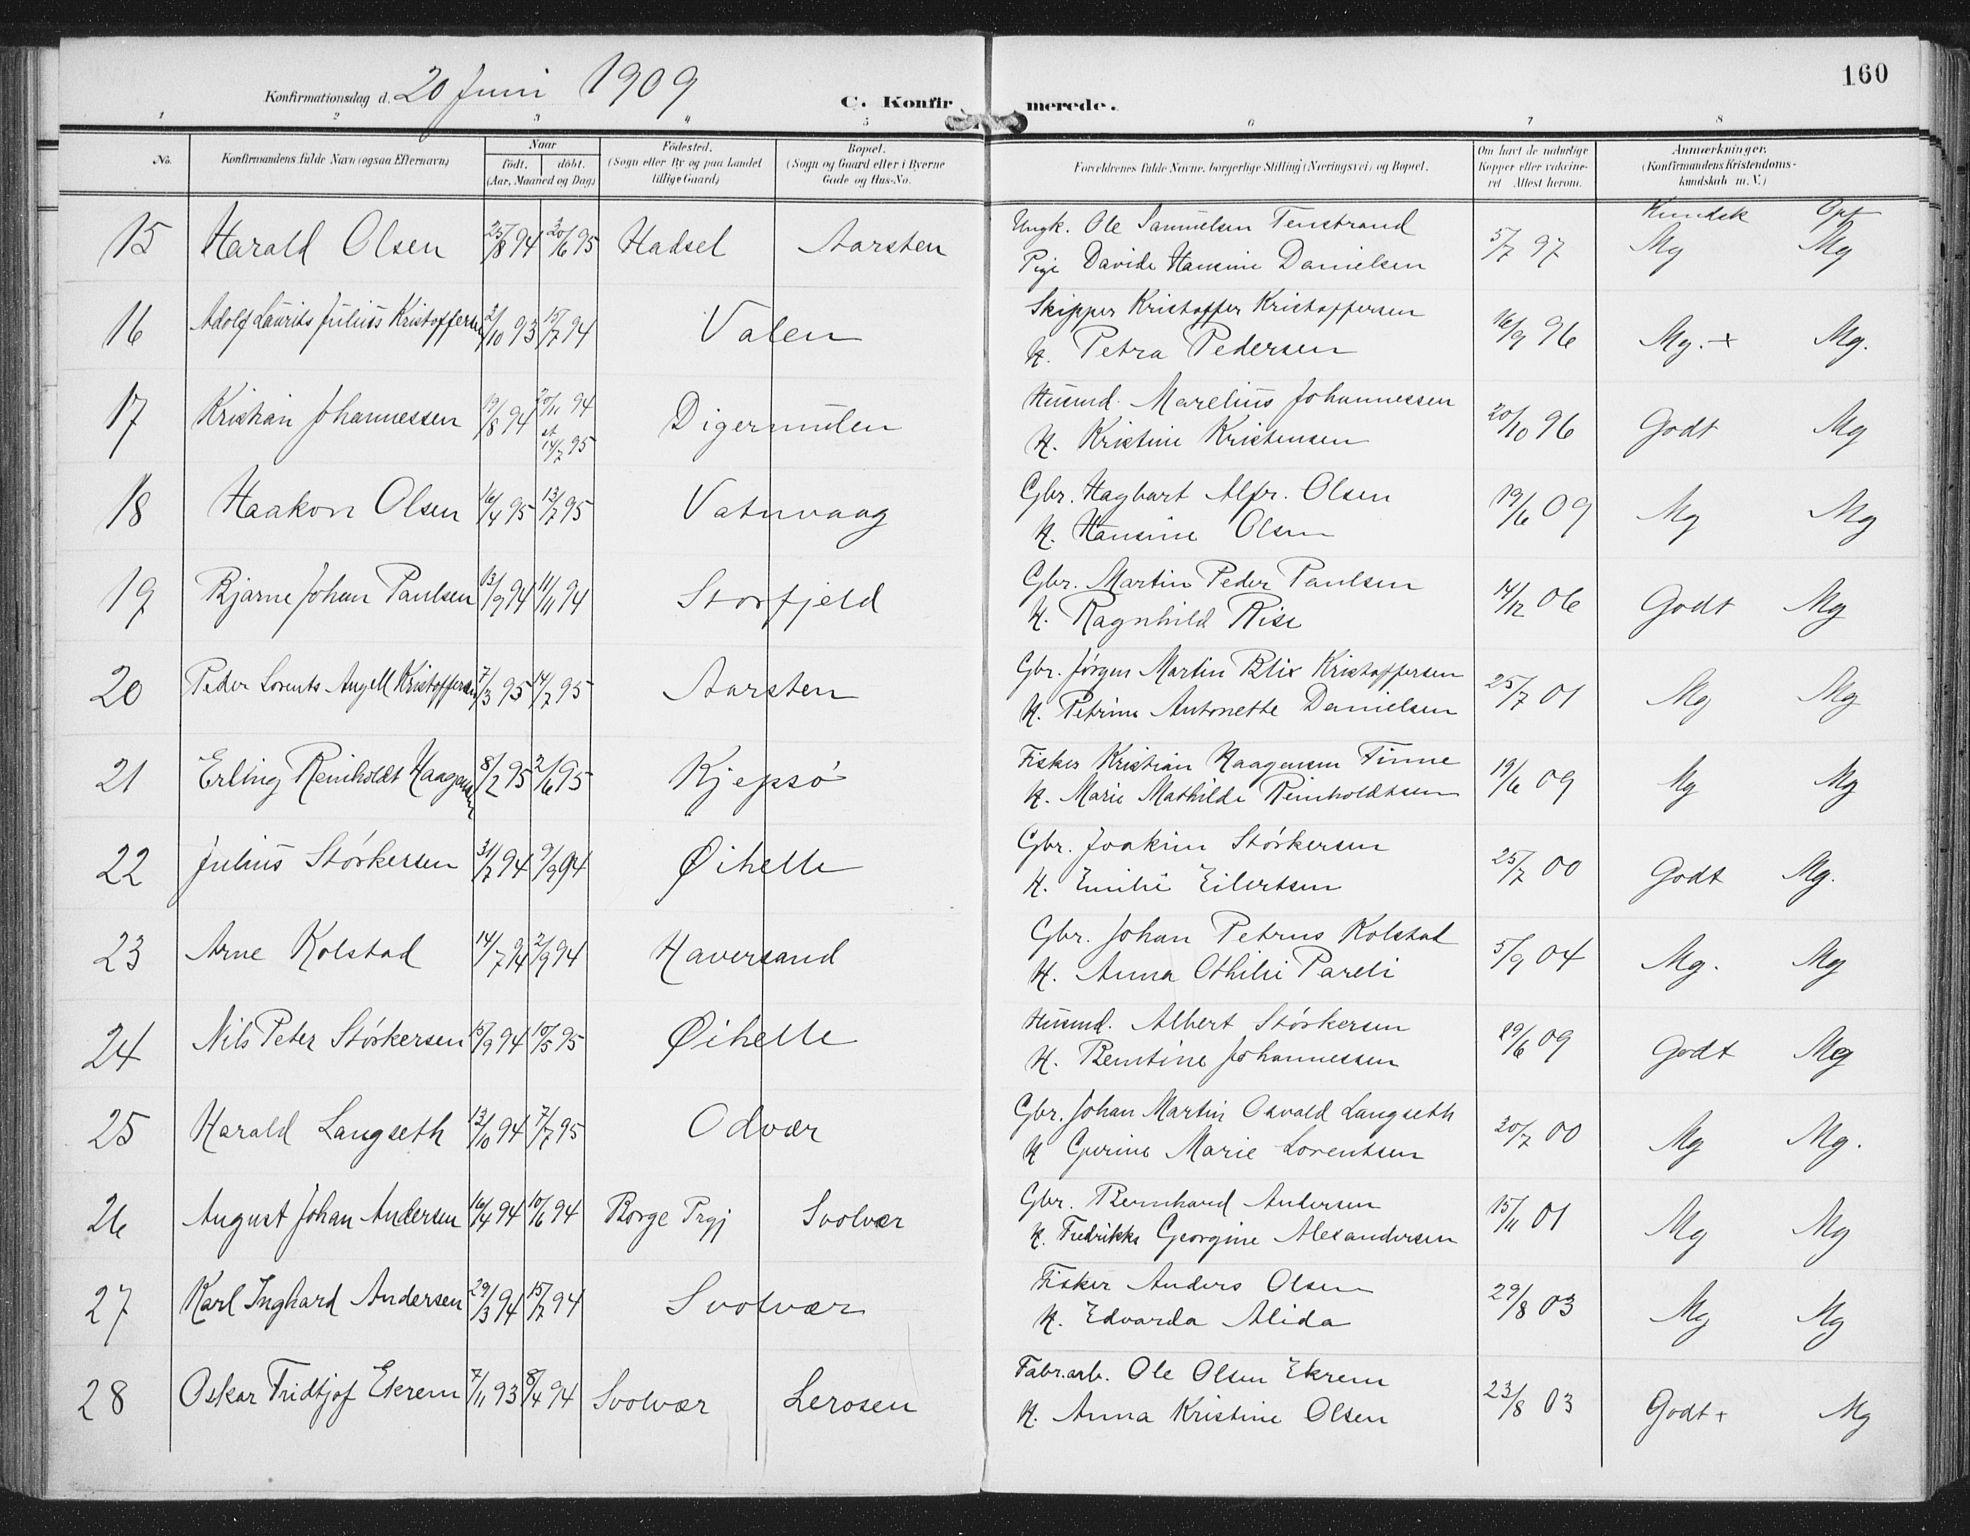 160
Konfirmationsdag d. 20 Juni 1909
C. Konfirmerede.
1 2 3 4 5 6 7 8
No.
Konfirmandens fulde Navn (ogsaa Efternavn)
Naar
födt. döbt.
(Aar, Maaned og Dag)
Födested.
(Sogn eller By og paa Landet
tillige Gaard)
Bopæl.
(Sogn og Gaard eller i Byerne
Gade og Hus-No.
Forældrenes fulde Navne, borgerlige Stilling (Næringsvei) og Bopæl.
Om havt de naturlige
Kopper eller vakcine-
ret Attest herom.
Anmærkninger.
(Konfirmandens Kristendoms-
kundskab m. V.)
Kundsk Opf
15 Harald Olsen 25/8 94 20/6 95 Hadsel Aarsten Ungk. Ole Samuelsen Tenstrand 5/7 97 Mg Mg
Pige Davide Hansine Danielsen
16 Adolf Laurits Julius Kristoffersen 2/10 93 15/7 94 Valen Skipper Kristoffer Kristoffersen 16/9 96 Mg. + Mg.
H. Petra Pedersen
17 Kristian Johannessen 19/8 94 20/11 94 Digermulen Husmd. Marelius Johannessen 20/10 96 Godt Mg
et 14/7 95 H. Kristine Kristensen
18 Haakon Olsen 16/4 95 13/7 95 Vatnvaag Gbr. Hagbart Alfr. Olsen 19/6 09 Mg Mg
H. Hansine Olsen
19 Bjarne Johan Paulsen 13/9 94 11/11 94 Storfjeld Gbr. Martin Peder Paulsen 14/12 06 Godt Mg
H. Ragnhild Rise
20 Peder Lorents Angell Kristoffersen 7/3 95 14/7 95 Aarsten Gbr. Jørgen Martin Blix Kristoffersen 25/7 01 Mg Mg
H. Petrine Antonette Danielsen
21 Erling Reinholdt Haagensen 8/2 95 2/6 95 Kjepsö Fisker Kristian Haagensen Finne 19/6 09 Mg Mg
H. Marie Mathilde Reinholdtsen
22 Julius Störkersen 31/7 94 9/9 94 Øihelle Gbr. Joakim Störkersen 25/7 00 Godt Mg.
H. Emilie Eilertsen
23 Arne Kolstad 14/7 94 2/9 94 Haversand Gbr. Johan Petrus Kolstad 5/9 04 Mg. Mg
H. Anna Othilie Pareli
24 Nils Peter Störkersen 15/9 94 10/5 95 Øihelle Husmd. Albert Störkersen 19/6 09 Godt Meg
H. Bentine Johannessen
25 Harald Langseth 13/10 94 7/7 95 Odvær Gbr. Johan Martin Osvald Langseth 20/7 00 Mg Mg.
H Gurine Marie Lorentsen
26 August Johan Andersen 16/4 94 10/6 94 Borge Prgj Svolvær Gbr. Bernhard Andersen 15/11 01 Mg Mg
H. Fredrikke Georgine Alexandersen
27 Karl Inghard Andersen 29/3 94 15/7 94 Svolvær Fisker Anders Olsen 29/8 03 Mg Mg
H. Edvarda Alida
28 Oskar Fridtjof Ekrem 7/11 93 8/4 94 Svolvær Lerosen Fabr.arb. Ole Olsen Ekrem 23/8 03 Godt + Mg
H. Anna Kristine Olsen